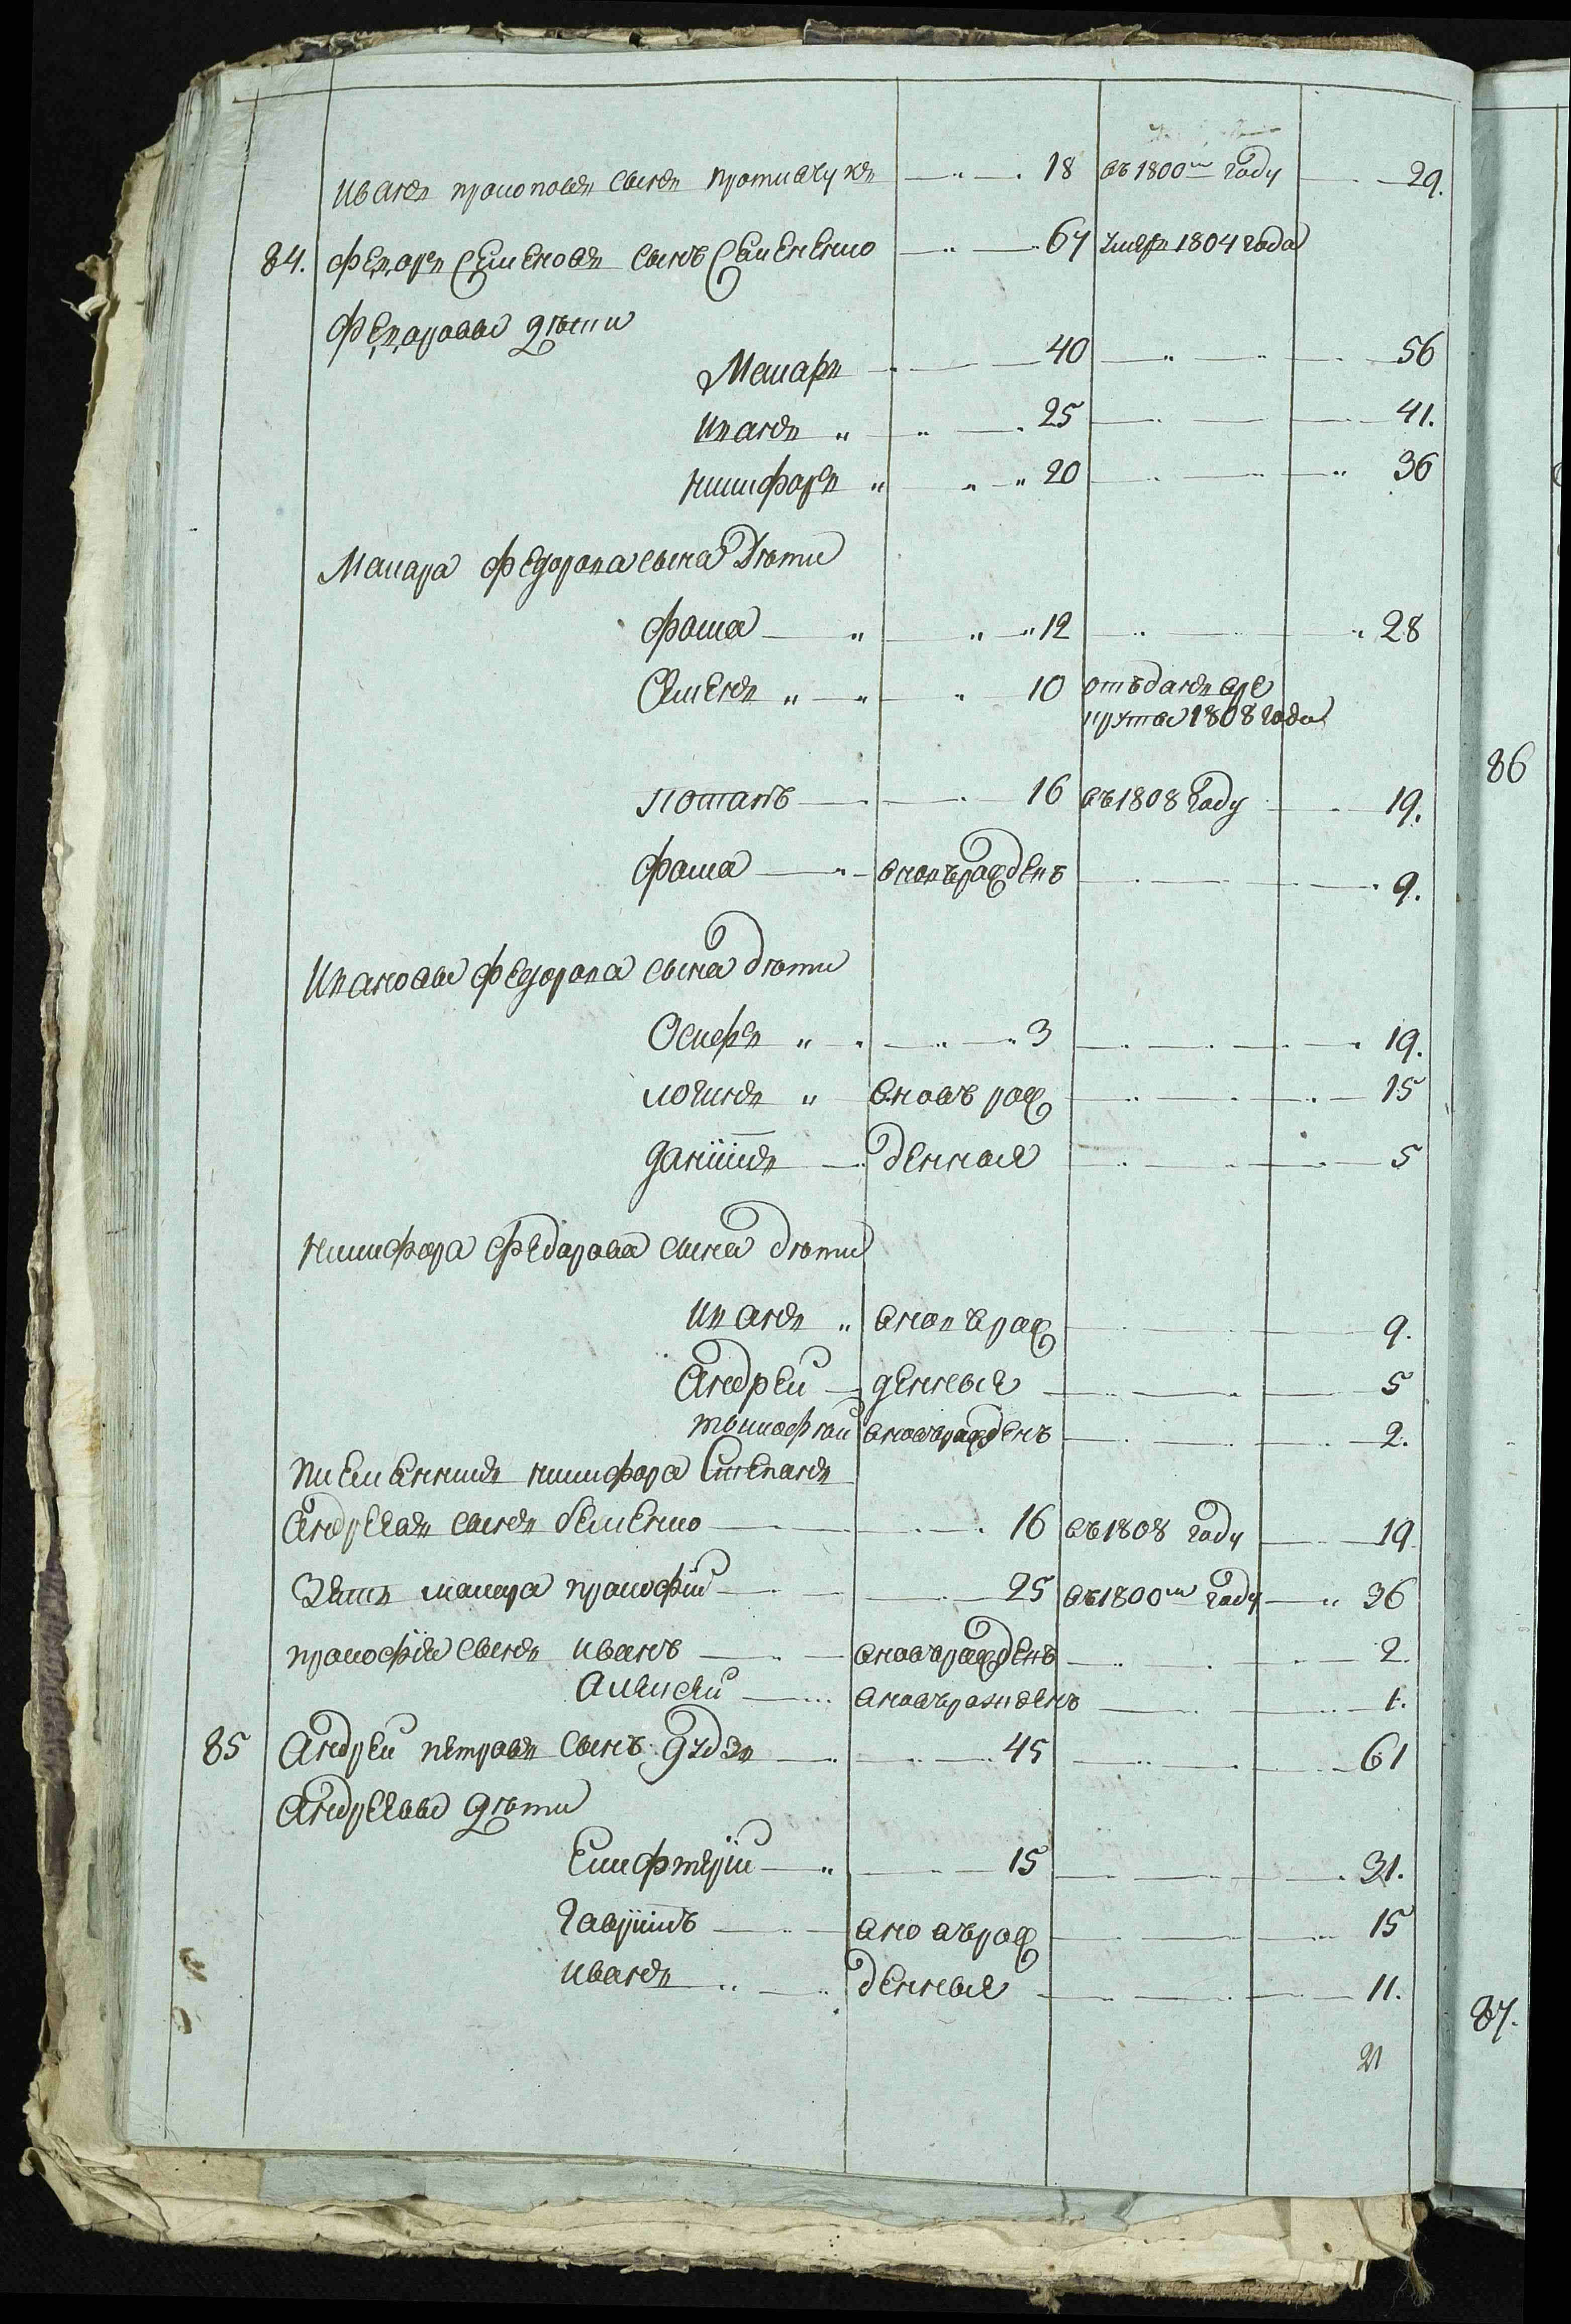 Иванъ прокоповъ сынъ 18 въ 1800м году 29.
84. Федоръ Семеновъ сынъ Семененко 67 умеръ 1804 года
Федоровы дѣти
Макаръ 40 56
Иванъ 25 41.
Никифоръ 20 36
Макара Федорова сына Дѣти
Фома 12 28
Семенъ 10 отъданъ вре
круты 1808 года
Потапъ 16 въ 1808 году 19.
Фома вновърожденъ 9.
Ивановы Федорова сына дѣти
Осифъ 3 19.
логинъ вновъ рож 15
данiилъ денные 5
Никифора Федорова сына дѣти
Иванъ вновъ рож 9.
Андрей денные 5
тимофей вновърожденъ 2.
племенникъ никифора Степанъ
Андреевъ сынъ 16 въ 1808 году 19
Зять макара прокофiй 25 въ 1800м году 36
прокофiя сынъ иванъ вновърожденъ 2.
Алексей вновърожденъ 1.
85 Андрей петровъ сынъ 45 61
Андреевы дѣти
Елифтерiй 15 31.
гаврiилъ вновърож 15
иванъ денные 11.
21
86
87.